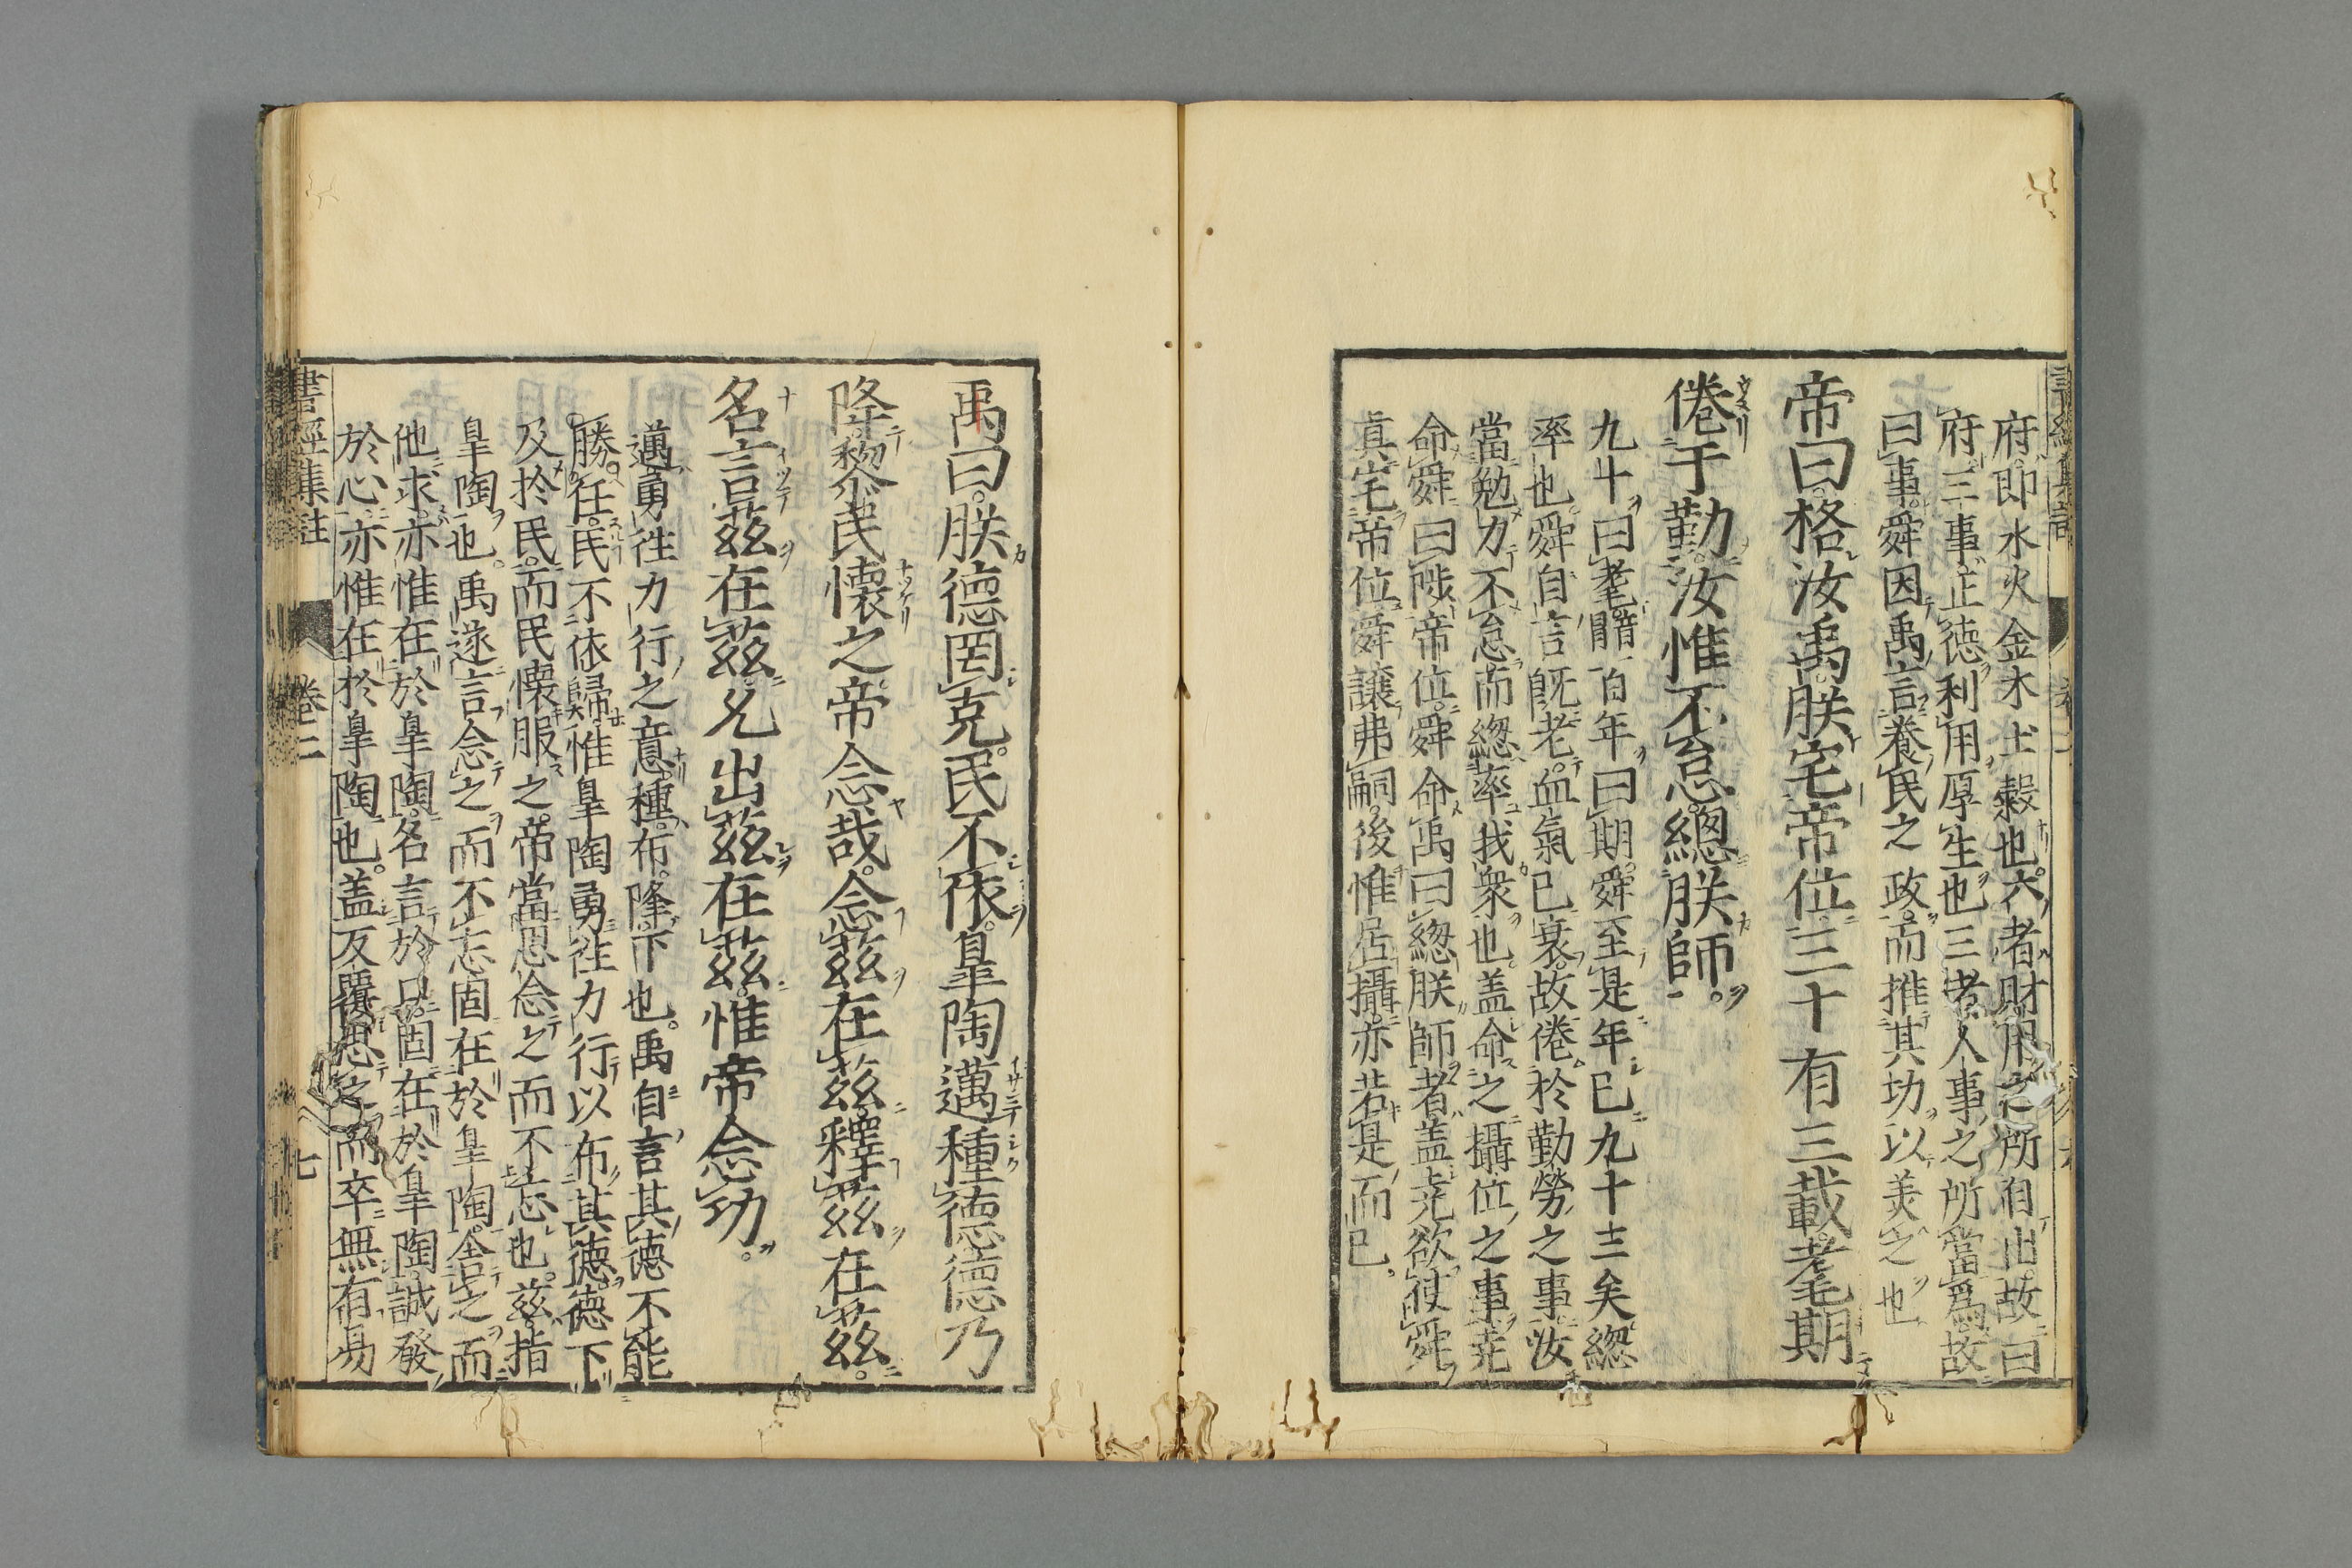 府即水火金木土穀也六者財用之所自出故曰
府三事正徳利用厚生也三者人事之所當為故
曰事舜因禹言養民之政而推其功以美之也
帝曰格汝禹朕宅帝位三十有三載耄期
倦于勤汝惟不怠總朕師
九十曰耄百年曰期舜至是年已九十三矣總
率也舜自言既老血氣已衰故倦於勤勞之事汝
當勉力不怠而總率我衆也盖命之攝位之事堯
命舜曰陟帝位舜命禹曰總朕師者盖堯欲使舜
真宅帝位舜讓弗嗣後惟居攝亦若是而已
禹曰朕德罔克民不依皐陶邁種德德乃
降黎民懷之帝念哉念茲在茲釋茲在茲
名言茲在茲允出茲在茲惟帝念功
邁勇徃力行之意種布降下也禹自言其徳不能
勝任民不依歸惟皐陶勇徃力行以布其徳徳下
及於民而民懷服之帝當思念之而不忘也茲指
皐陶也禹遂言念之而不忘固在於皐陶舎之而
他求亦惟在於皐陶名言於口固在於皐陶誠發
於心亦惟在於皐陶也盖反覆思之而卒無有易
書經集註 卷二 七